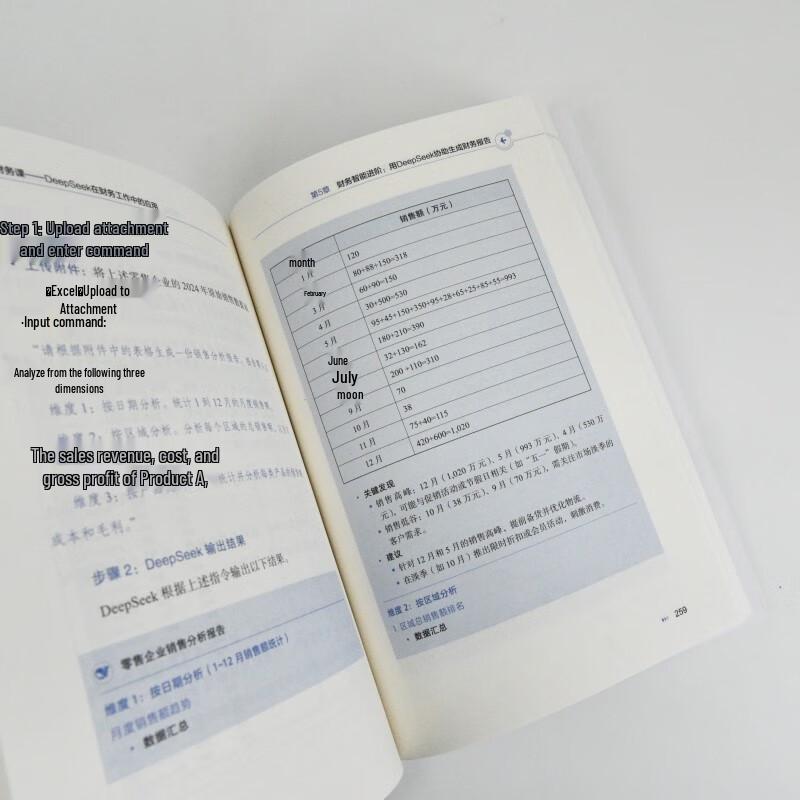 财务课——DeepSeek在财务工作中的应用
Step 1: Upload attachment
and enter command
上传附件：将上述零售企业的2024年
Excel
Upload to
Attachment
·Input command:
“请根据附件中的表格生成一份销售分析报告，
Analyze from the following three
dimensions
维度 1：按日期分析，统计 1 到 12 月的月度销售额。
维度 2：按区域分析，分析每个区域的总销售额，
The sales revenue, cost, and
gross profit of Product A,
维度 3：按产品 统计并分析每类产品的
成本和毛利。”
步骤 2：DeepSeek 输出结果
DeepSeek 根据上述指令输出以下结果。
零售企业销售分析报告
维度 1：按日期分析（1~12 月销售额统计）
月度销售额趋势
• 数据汇总
第5章 财务智能进阶：用DeepSeek协助生成财务报告
销售额（万元）
month
120
1 月
80+88+150=318
February
60+90=150
3 月
30+500=530
4 月
95+45+150+350+95+28+65+25+85+55=993
5 月
180+210=390
June
32+130=162
July
200 +110=310
moon
70
9 月
38
10 月
75+40=115
11 月
420+600=1,020
12 月
• 关键发现
• 销售高峰：12 月（1,020 万元）、5 月（993 万元）、4 月（530 万
元），可能与促销活动或节假日相关（如“五一”假期）。
• 销售低谷：10 月（38 万元）、9 月（70 万元），需关注市场淡季的
客户需求。
• 建议
• 针对 12 月和 5 月的销售高峰，提前备货并优化物流。
• 在淡季（如 10 月）推出限时折扣或会员活动，刺激消费。
维度 2：按区域分析
1. 区域总销售额排名
• 数据汇总
259